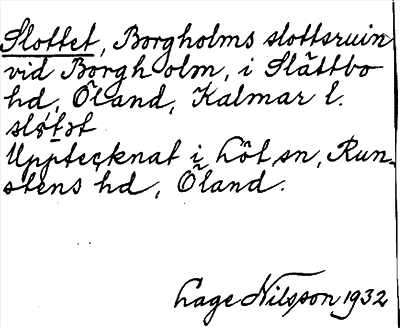 Slottet, Borgholms slottsruin
vid Borgholm, i Slättbo
hd, Öland, Kalmar l.
slǿtǝt
Upptecknat i Löt sn, Run-
stens hd, Öland.
Lage Nilsson 1932